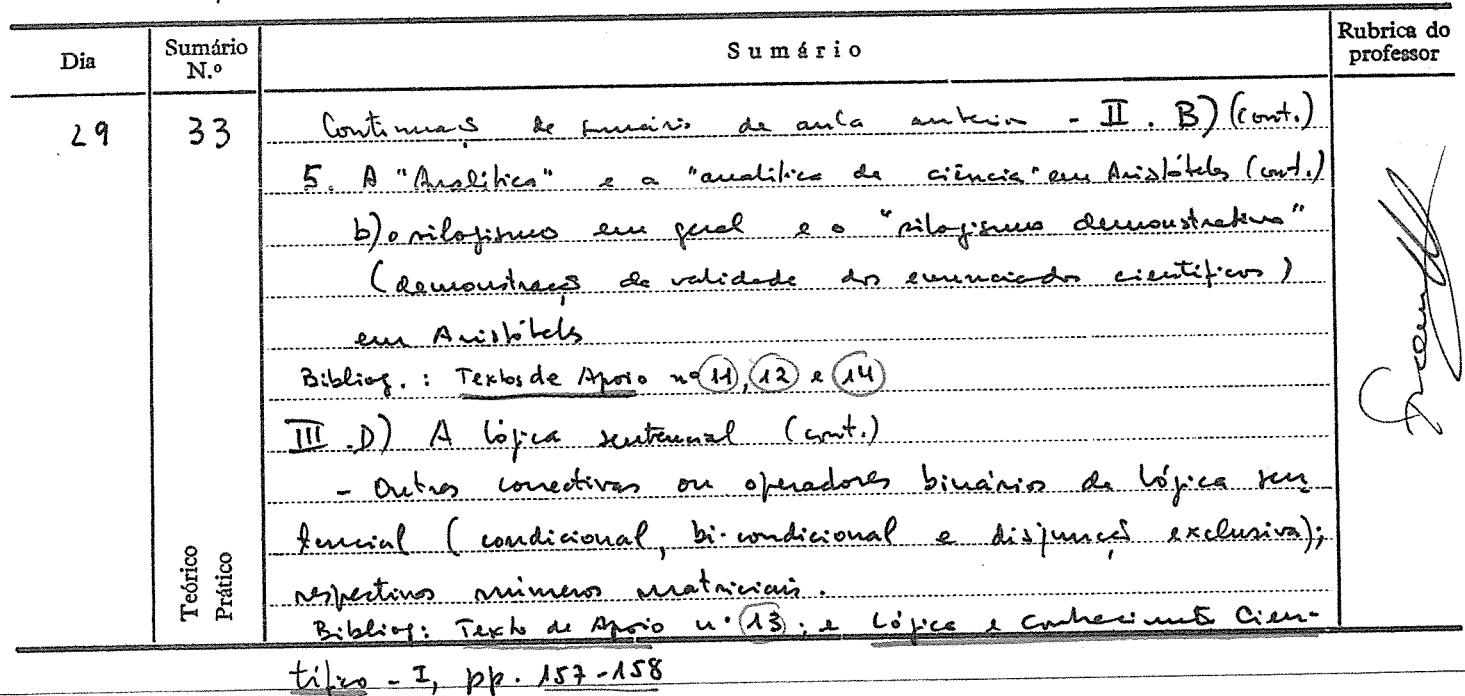 Dia Sumário N.º Sumário Rubrica do professor
29 33 Continuação do sumário da aula anterior - II. B) (cont.)
5. A "Analítica" e a "analítica da ciência" em Aristóteles (cont.)
b) o silogismo em geral e o "silogismo demonstrativo"
(demonstração da validade dos enunciados científicos)
em Aristóteles
Bibliog. : Textos de Apoio nº 11, 12 e 14
III .D) A lógica sentencial (cont.)
- Outras conectivas ou operadores binários da lógica sen
tencial (condicional, bi-condicional e disjunção exclusiva);
respectivos números matriciais.
Teórico
Prático
Bibliog: Texto de Apoio nº 13; e Lógica e Conhecimento Cien-
tífico - I, pp. 157-158